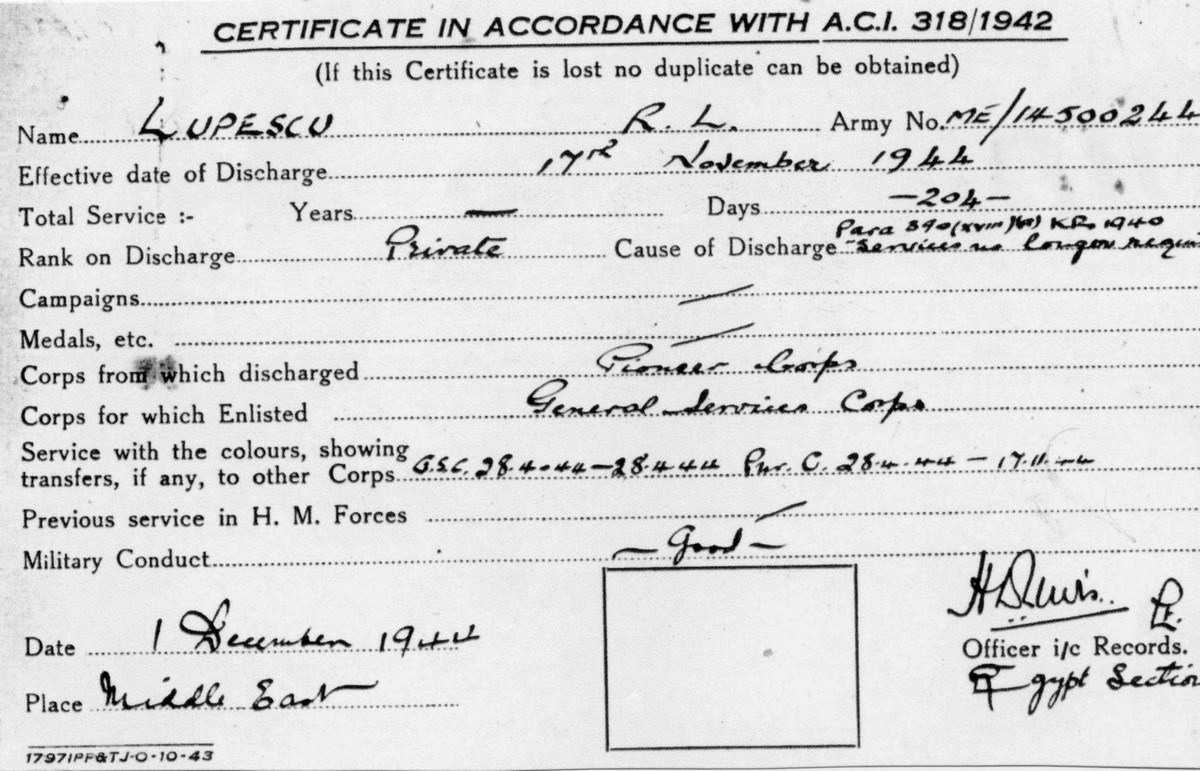 CERTIFICATE IN ACCORDANCE WITH A.C.I. 318/1942
(If this Certificate is lost no duplicate can be obtained)
Name LUPESCU R. L. Army No. ME/14500244
Effective date of Discharge 17TH November 1944
Total Service :- Years — Days —204—
Para 390(xviii) KR 1940
Rank on Discharge Private Cause of Discharge Services no longer
Campaigns
Medals, etc.
Corps from which discharged Pioneer Corps
Corps for which Enlisted General Services Corps
Service with the colours, showing
transfers, if any, to other Corps G.S.C. 28.4.44—28.4.44 Pnr. C. 28.4.44 — 17.11.44
Previous service in H. M. Forces
Military Conduct — Good —
Date 1 December 1944
Lt.
Officer i/c Records.
Place Middle East
Egypt Section
17971PP&TJ-O-10-43